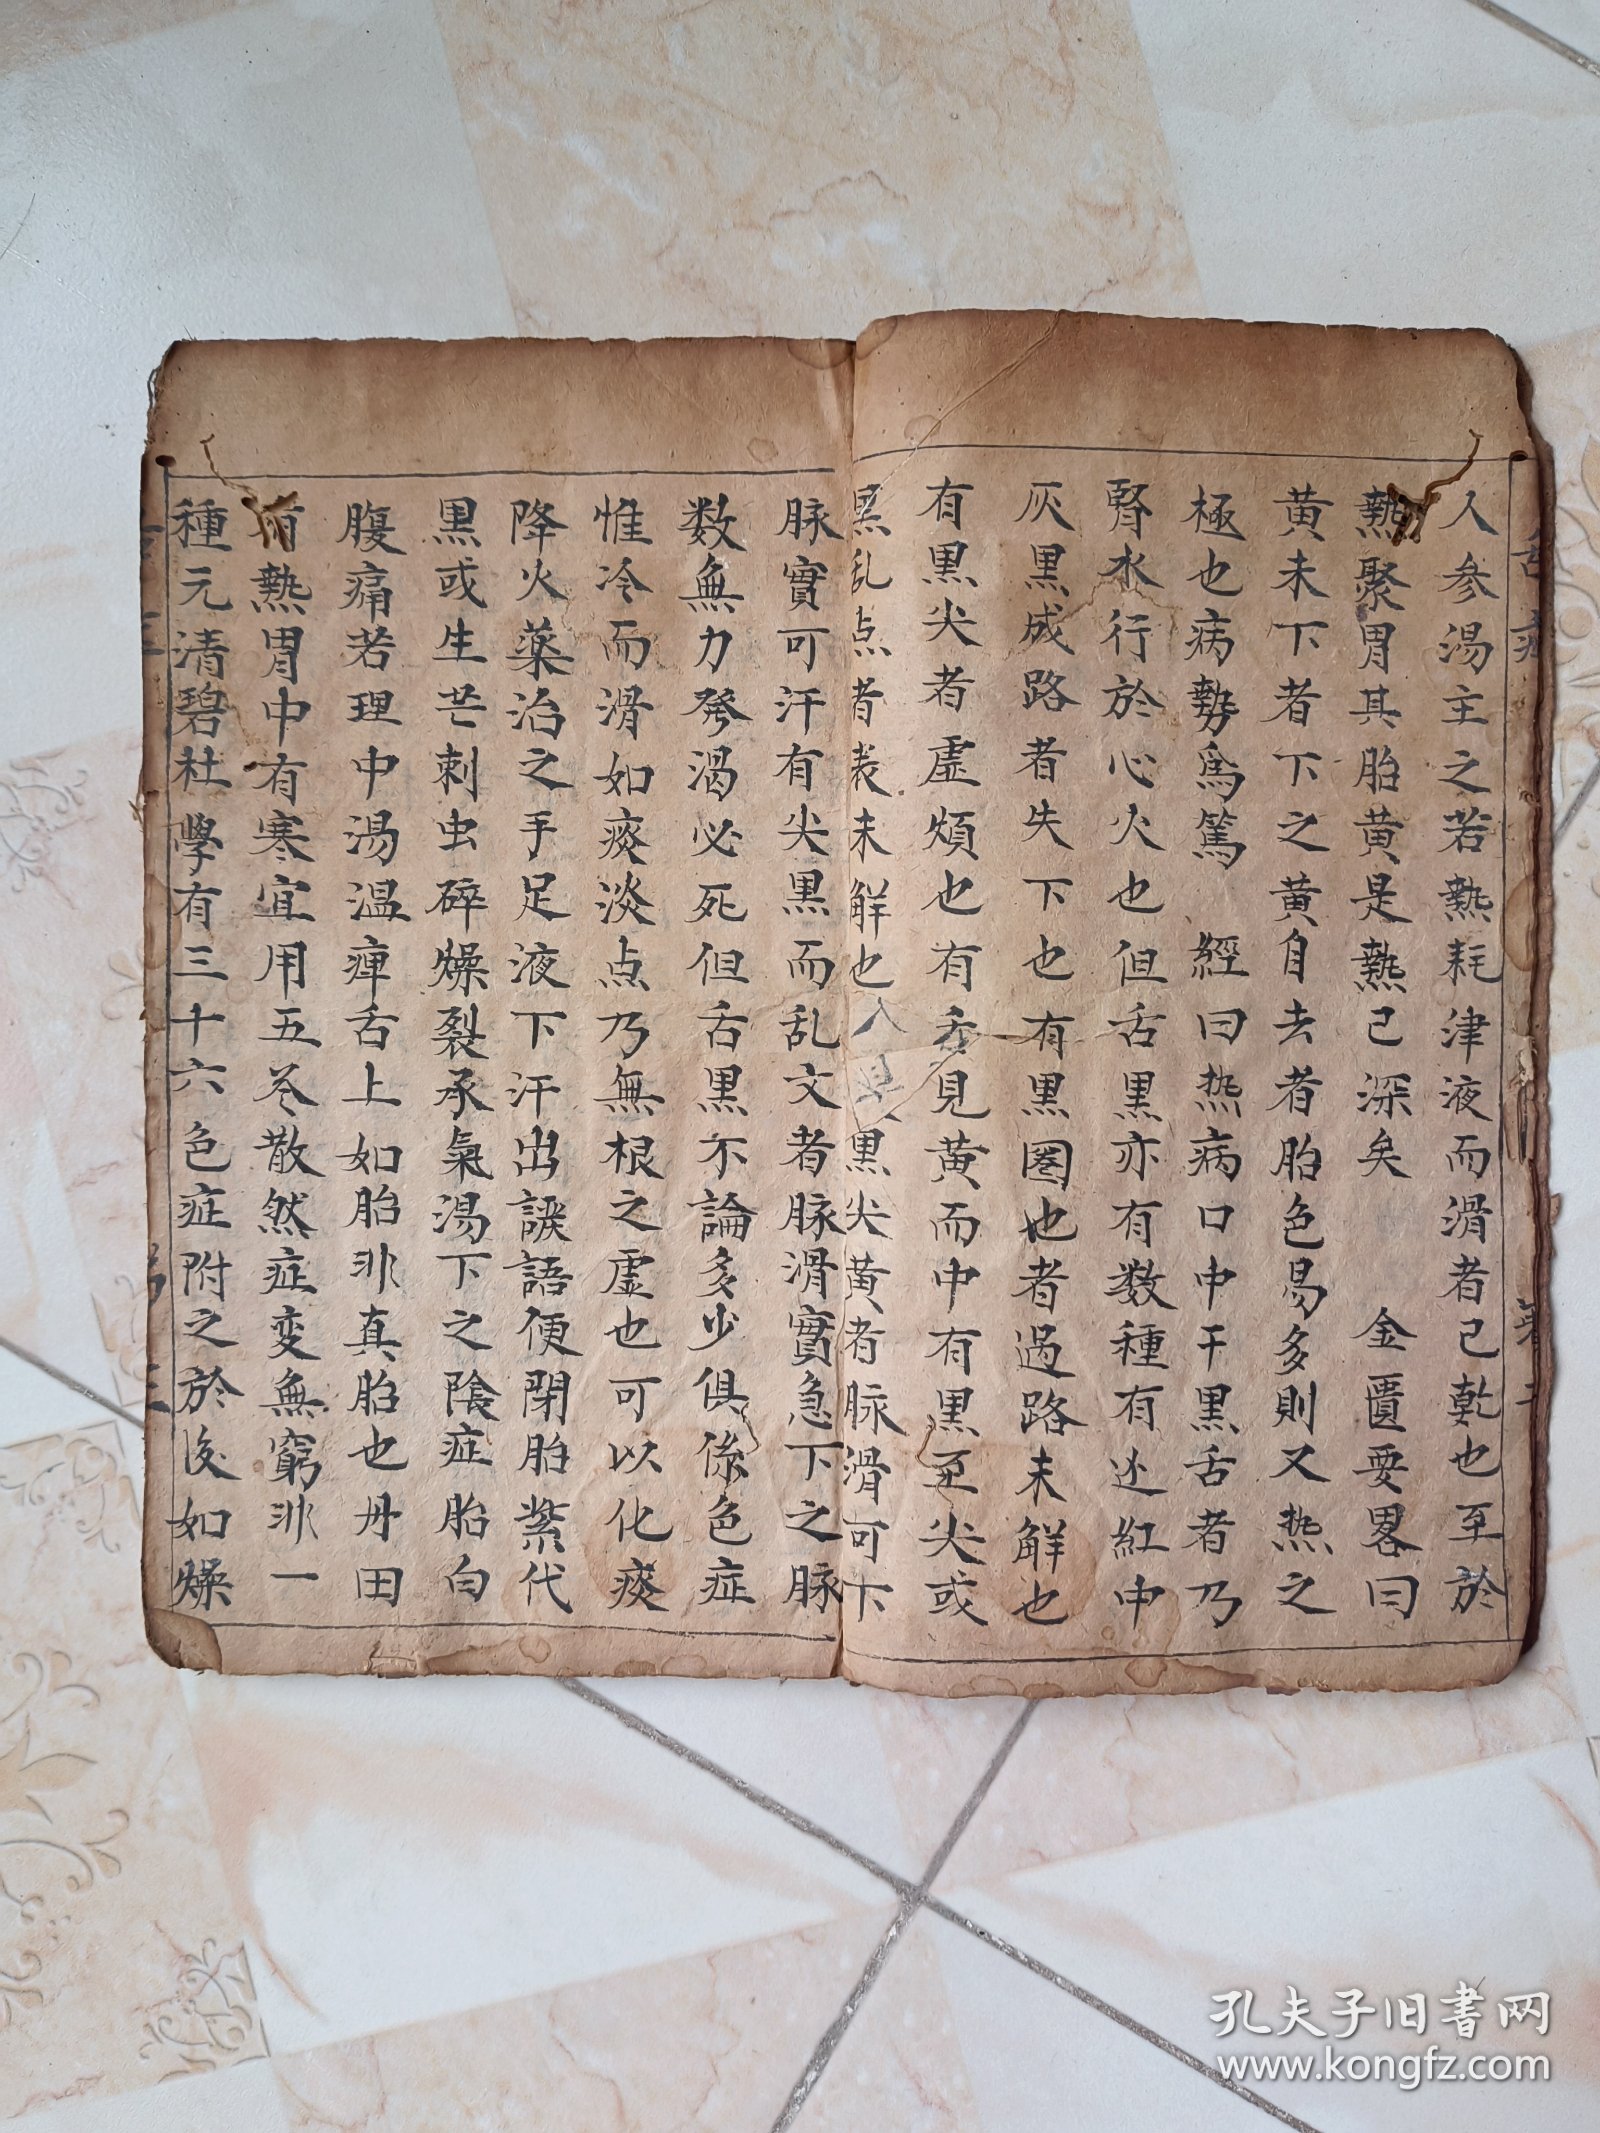 人参湯主之若熱耗津液而滑者已乾也至於
熱聚胃其胎黄是熱已深矣 金匱要畧曰
黄未下者下之黄自去者胎色易多則又热之
極也病勢爲篤 經曰热病口中干黒舌者乃
腎水行於心火也但舌黒亦有数種有紅中
灰黒成路者失下也有黒圏也者過路未觧也
有黒尖者虚煩也有舌見黄而中有黒至尖或
黒乱点者表未觧也入具黒尖黄者脉滑可下
脉實可汗有尖黒而乱文者脉滑實急下之脉
数無力發渴必死但舌黒不論多少俱係色症
惟冷而滑如痰淡点乃無根之虚也可以化痰
降火藥治之手足液下汗出誤語便閉胎紫代
黒或生芒刺虫碎燥裂承氣湯下之陰症胎白
腹痛若理中湯温痺舌上如胎非真胎也丹田
有熱胃中有寒宜用五苓散然症变無窮非一
種元清碧杜學有三十六色症附之於後如燥
孔夫子旧書网
www.kongfz.com